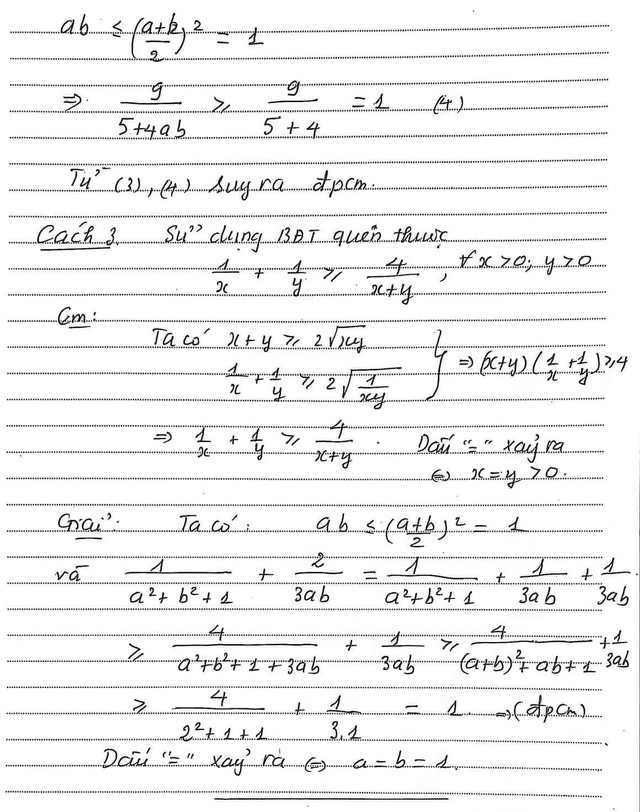 ab ≤ (a+b/2)² = 1
⇒ 9/(5+4ab) ≥ 9/(5+4) = 1 (4)
Từ (3), (4) suy ra đpcm.
Cách 3. Sử dụng BĐT quen thuộc
1/x + 1/y ≥ 4/(x+y), ∀x>0; y>0
Cm:
Ta có x+y ≥ 2√xy
1/x + 1/y ≥ 2√(1/xy) } ⇒ (x+y)(1/x + 1/y) ≥ 4
⇒ 1/x + 1/y ≥ 4/(x+y). Dấu "=" xảy ra
⇔ x=y>0.
Giải: Ta có: ab ≤ (a+b/2)² = 1
và 1/(a²+b²+1) + 2/3ab = 1/(a²+b²+1) + 1/3ab + 1/3ab
≥ 4/(a²+b²+1+3ab) + 1/3ab ≥ 4/((a+b)²+ab+1) + 1/3ab
≥ 4/(2²+1+1) + 1/3.1 = 1. ⇒(đpcm)
Dấu "=" xảy ra ⇔ a=b=1.